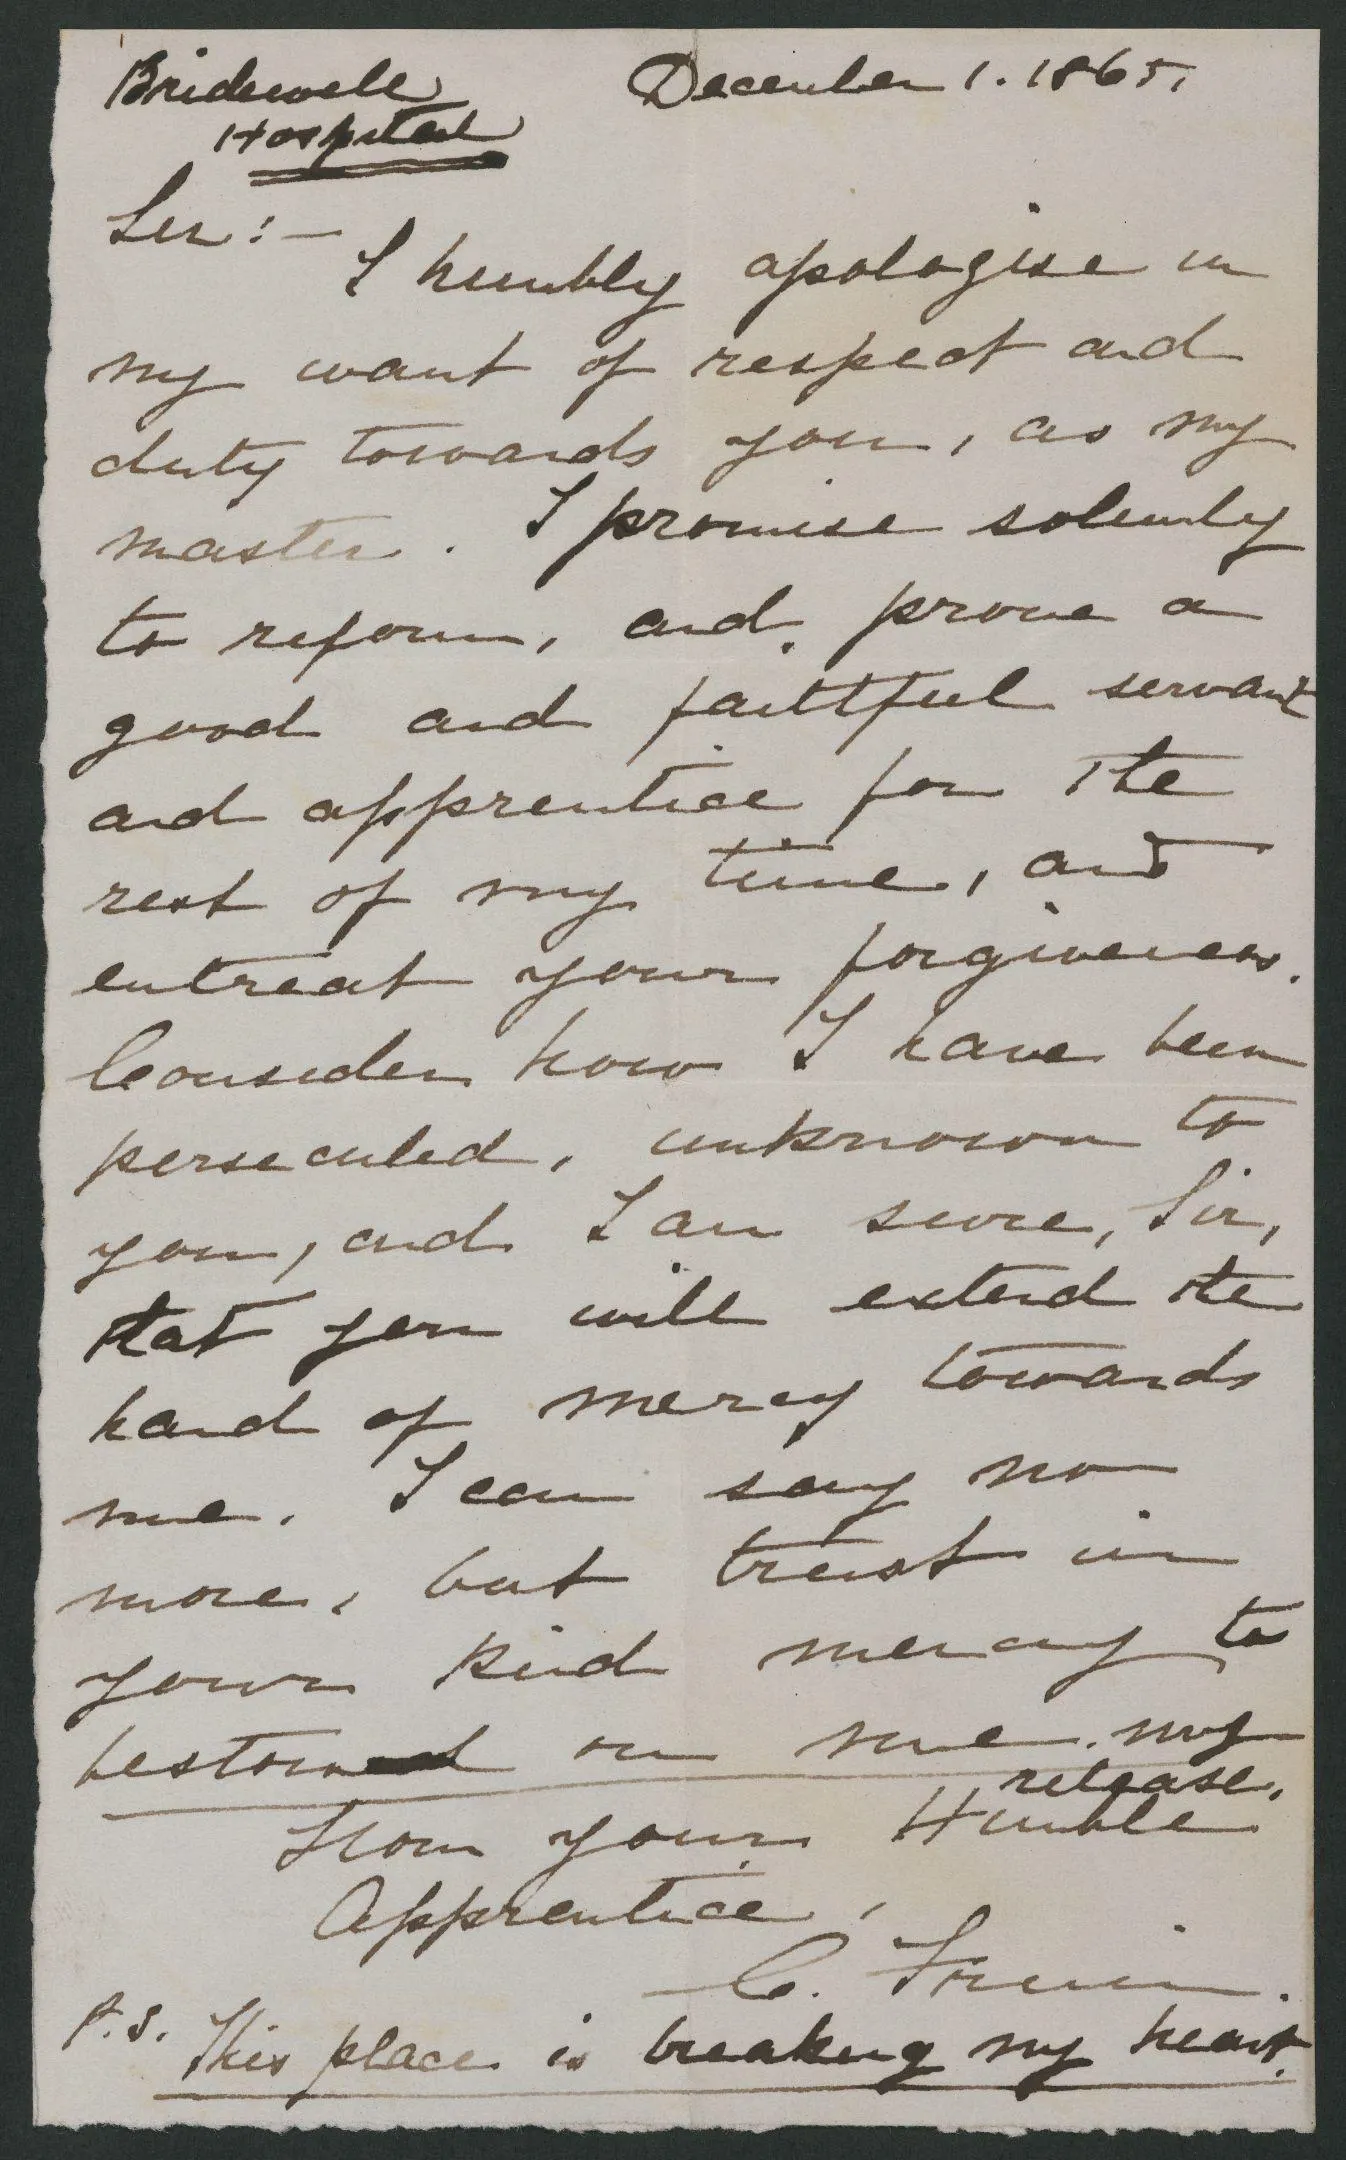 Bridewell December 1. 1865.
Hospital
Sir:—
I humbly apologise in
my want of respect and
duty towards you, as my
master. I promise solemnly
to reform, and, prove a
good and faithful servant
and apprentice for the
rest of my time, and
entreat your forgiveness.
Consider how I have been
persecuted, unknown to
you, and I am sure, Sir,
that you will extend the
hand of mercy towards
me. I can say no
more, but trust in
your kind mercy to
bestowed on me. my
release.
From your Humble
Apprentice,
C.
P.S. This place is breaking my heart.